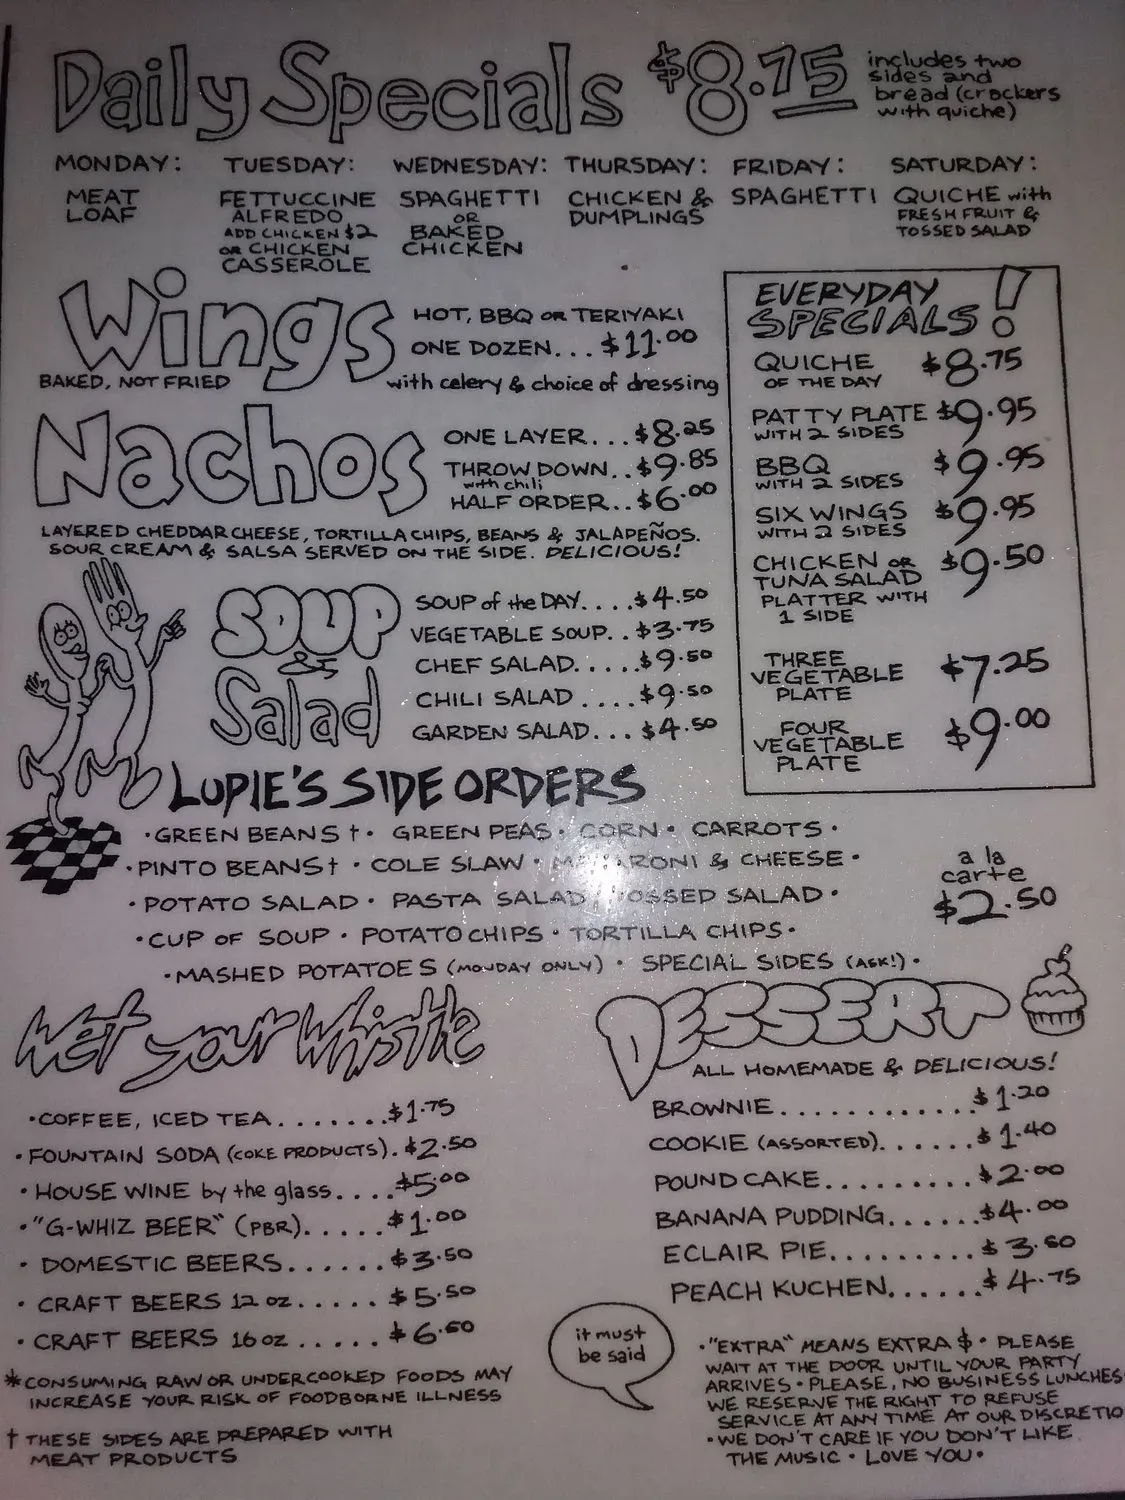 Daily Specials $8.75 includes two
sides and
bread (crackers
with quiche)
MONDAY: TUESDAY: WEDNESDAY: THURSDAY: FRIDAY: SATURDAY:
MEAT
LOAF
FETTUCCINE
ALFREDO
ADD CHICKEN $2
OR CHICKEN
CASSEROLE
SPAGHETTI
OR
BAKED
CHICKEN
CHICKEN &
DUMPLINGS
SPAGHETTI
QUICHE with
FRESH FRUIT &
TOSSED SALAD
Wings
BAKED, NOT FRIED
HOT, BBQ OR TERIYAKI
ONE DOZEN... $11.00
with celery & choice of dressing
Nachos
ONE LAYER... $8.25
THROW DOWN.. $9.85
with chili
HALF ORDER.. $6.00
LAYERED CHEDDAR CHEESE, TORTILLA CHIPS, BEANS & JALAPEÑOS.
SOUR CREAM & SALSA SERVED ON THE SIDE. DELICIOUS!
EVERYDAY
SPECIALS!
QUICHE $8.75
OF THE DAY
PATTY PLATE $9.95
WITH 2 SIDES
BBQ $9.95
WITH 2 SIDES
SIX WINGS $9.95
WITH 2 SIDES
CHICKEN OR $9.50
TUNA SALAD
PLATTER WITH
1 SIDE
THREE
VEGETABLE $7.25
PLATE
FOUR
VEGETABLE $9.00
PLATE
SOUP
&
Salad
SOUP of the DAY.... $4.50
VEGETABLE SOUP.. $3.75
CHEF SALAD..... $9.50
CHILI SALAD .... $9.50
GARDEN SALAD... $4.50
LUPIE'S SIDE ORDERS
• GREEN BEANS † • GREEN PEAS • CORN • CARROTS •
• PINTO BEANS † • COLE SLAW • MACARONI & CHEESE •
• POTATO SALAD • PASTA SALAD • TOSSED SALAD •
• CUP OF SOUP • POTATO CHIPS • TORTILLA CHIPS •
• MASHED POTATOES (MONDAY ONLY) • SPECIAL SIDES (ASK!) •
a la
carte
$2.50
Wet your Whistle
• COFFEE, ICED TEA....... $1.75
• FOUNTAIN SODA (COKE PRODUCTS). $2.50
• HOUSE WINE by the glass.... $5.00
• "G-WHIZ BEER" (PBR)..... $1.00
• DOMESTIC BEERS...... $3.50
• CRAFT BEERS 12 oz..... $5.50
• CRAFT BEERS 16 oz ..... $6.50
* CONSUMING RAW OR UNDERCOOKED FOODS MAY
INCREASE YOUR RISK OF FOODBORNE ILLNESS
† THESE SIDES ARE PREPARED WITH
MEAT PRODUCTS
DESSERT
ALL HOMEMADE & DELICIOUS!
BROWNIE............ $1.20
COOKIE (ASSORTED)...... $1.40
POUND CAKE......... $2.00
BANANA PUDDING...... $4.00
ECLAIR PIE......... $3.50
PEACH KUCHEN...... $4.75
it must
be said
• "EXTRA" MEANS EXTRA $ • PLEASE
WAIT AT THE DOOR UNTIL YOUR PARTY
ARRIVES • PLEASE, NO BUSINESS LUNCHES
WE RESERVE THE RIGHT TO REFUSE
SERVICE AT ANY TIME AT OUR DISCRETIO
• WE DON'T CARE IF YOU DON'T LIKE
THE MUSIC • LOVE YOU •